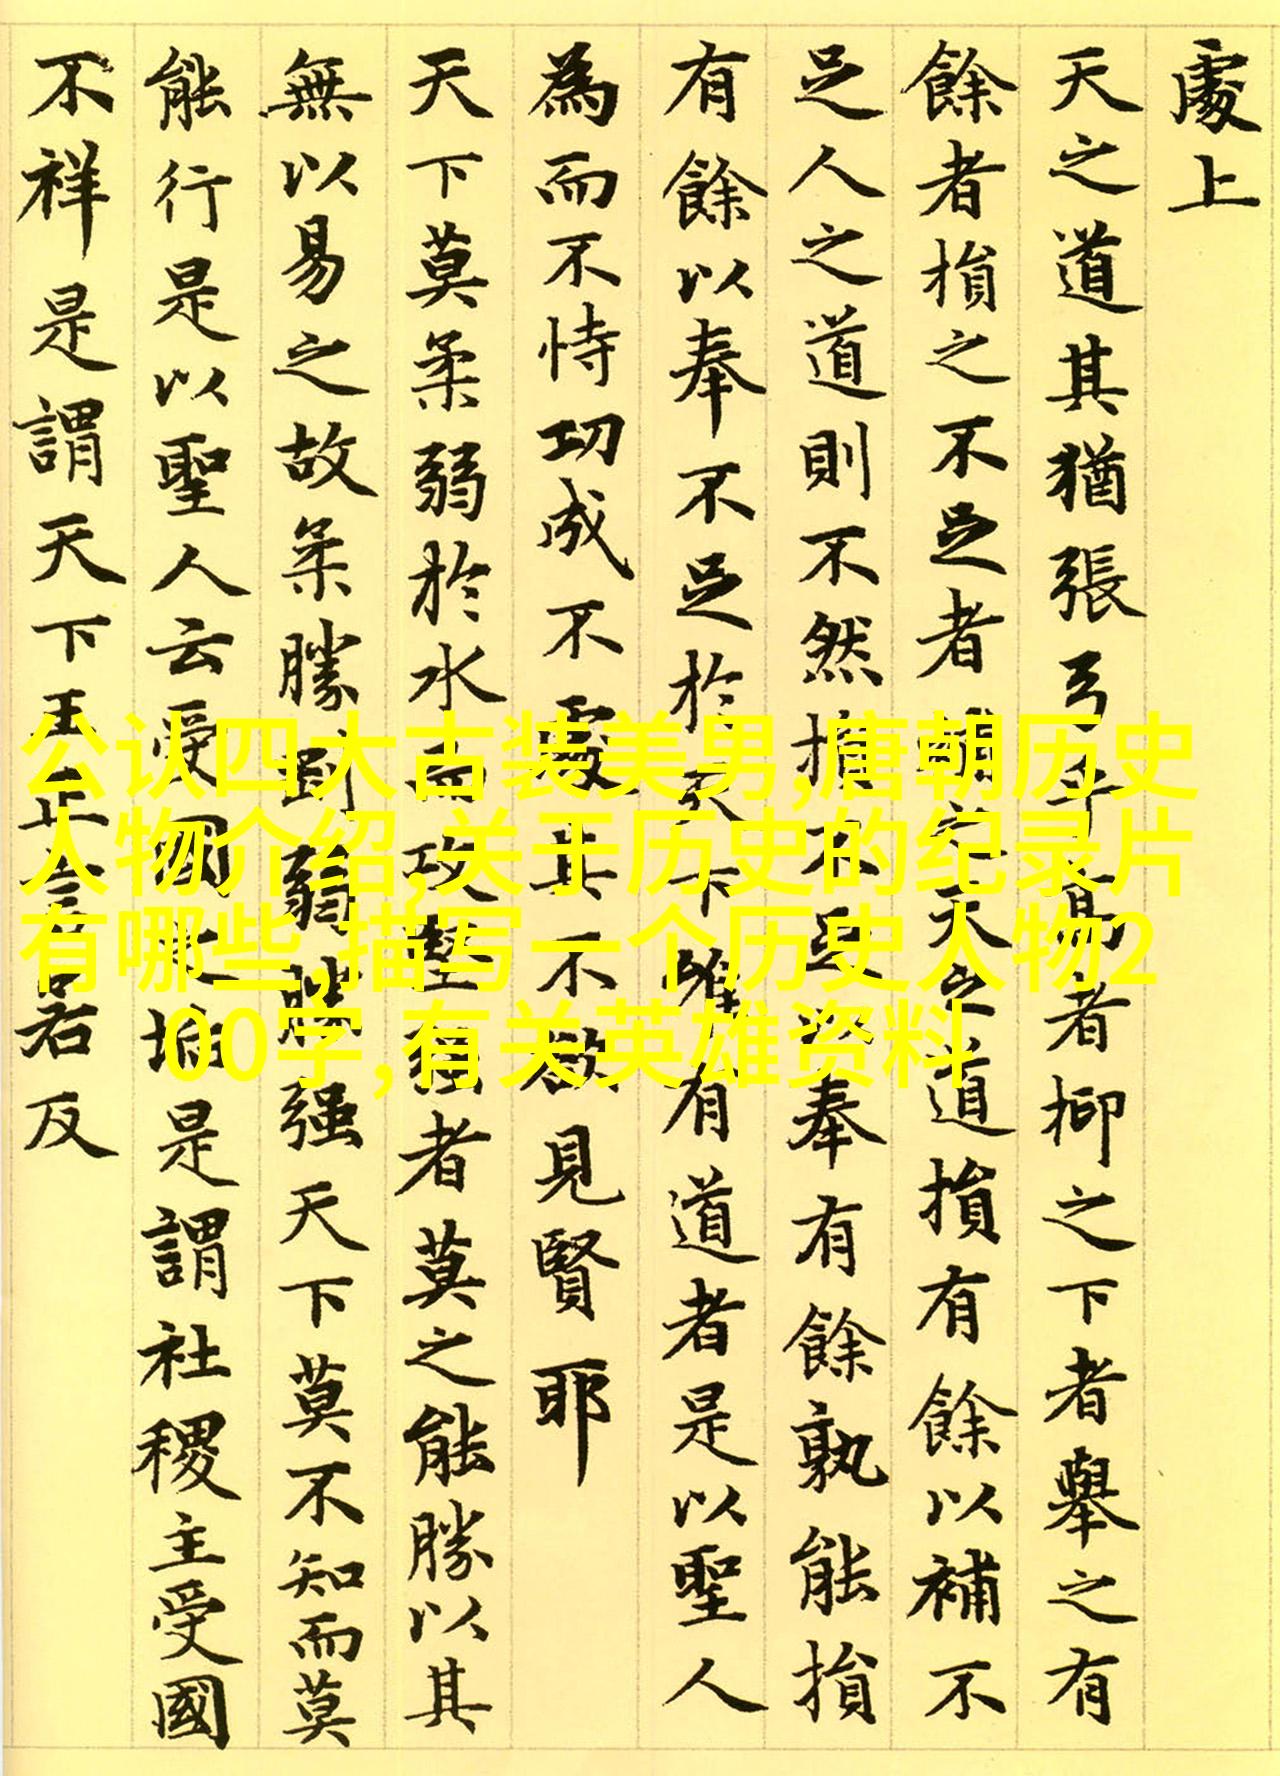 處上
天之道其猶張弓乎高者抑之下者舉之有
餘者損之不足者補之天之道損有餘以補不
足人之道則不然損不足以奉有餘孰能損
有餘以奉不足於天下唯有道者是以聖人
為而不恃功成不處其不欲見賢耶
天下莫柔弱於水而攻堅強者莫之能勝以其
無以易之故柔勝剛弱勝强天下莫不知而莫
能行是以聖人云受國之垢是謂社稷主受國
不祥是謂天下王正言若反
公认四大古装美男,唐朝历史
人物介绍,关于历史的纪录片
有哪些,描写一个历史人物2
00字,有关英雄资料